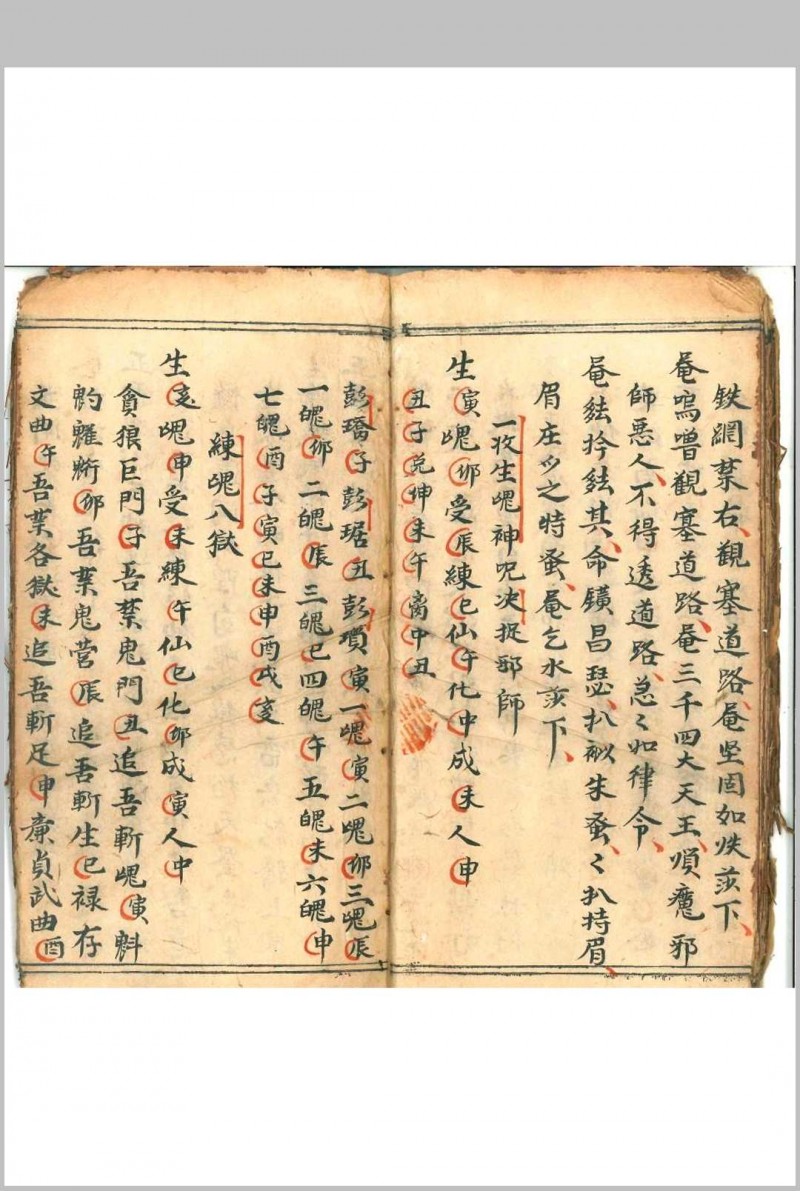 鉄網禁右觀塞道路奄坚固如鉄茨下
奄嗚嚕觀塞道路奄三千四大天王順魔邪
師悪人不得透道路急〻如律令
奄䋎扲䋎其命鐄昌瑟扒朱蚤〻扒持眉
眉庄之特蚤奄乞水茨下
一收生魂神呪决捉邪師
生寅魂卯受辰練巳仙午化中成未人申
丑子兑坤未午离中丑
彭𤩝子彭琚丑彭瓆寅一魂寅二魂卯三魂辰
一魄卯二魄辰三魄巳四魄午五魄未六魄申
七魄酉子寅巳未申酉戌亥
練魂八獄
生亥魂申受未練午仙巳化卯成寅人中
貪狼巨門子吾禁鬼門丑追吾斬魂寅斛
卯吾禁鬼营辰追吾斬生巳禄存
文曲午吾禁各獄未追吾斬足申亷貞武曲酉